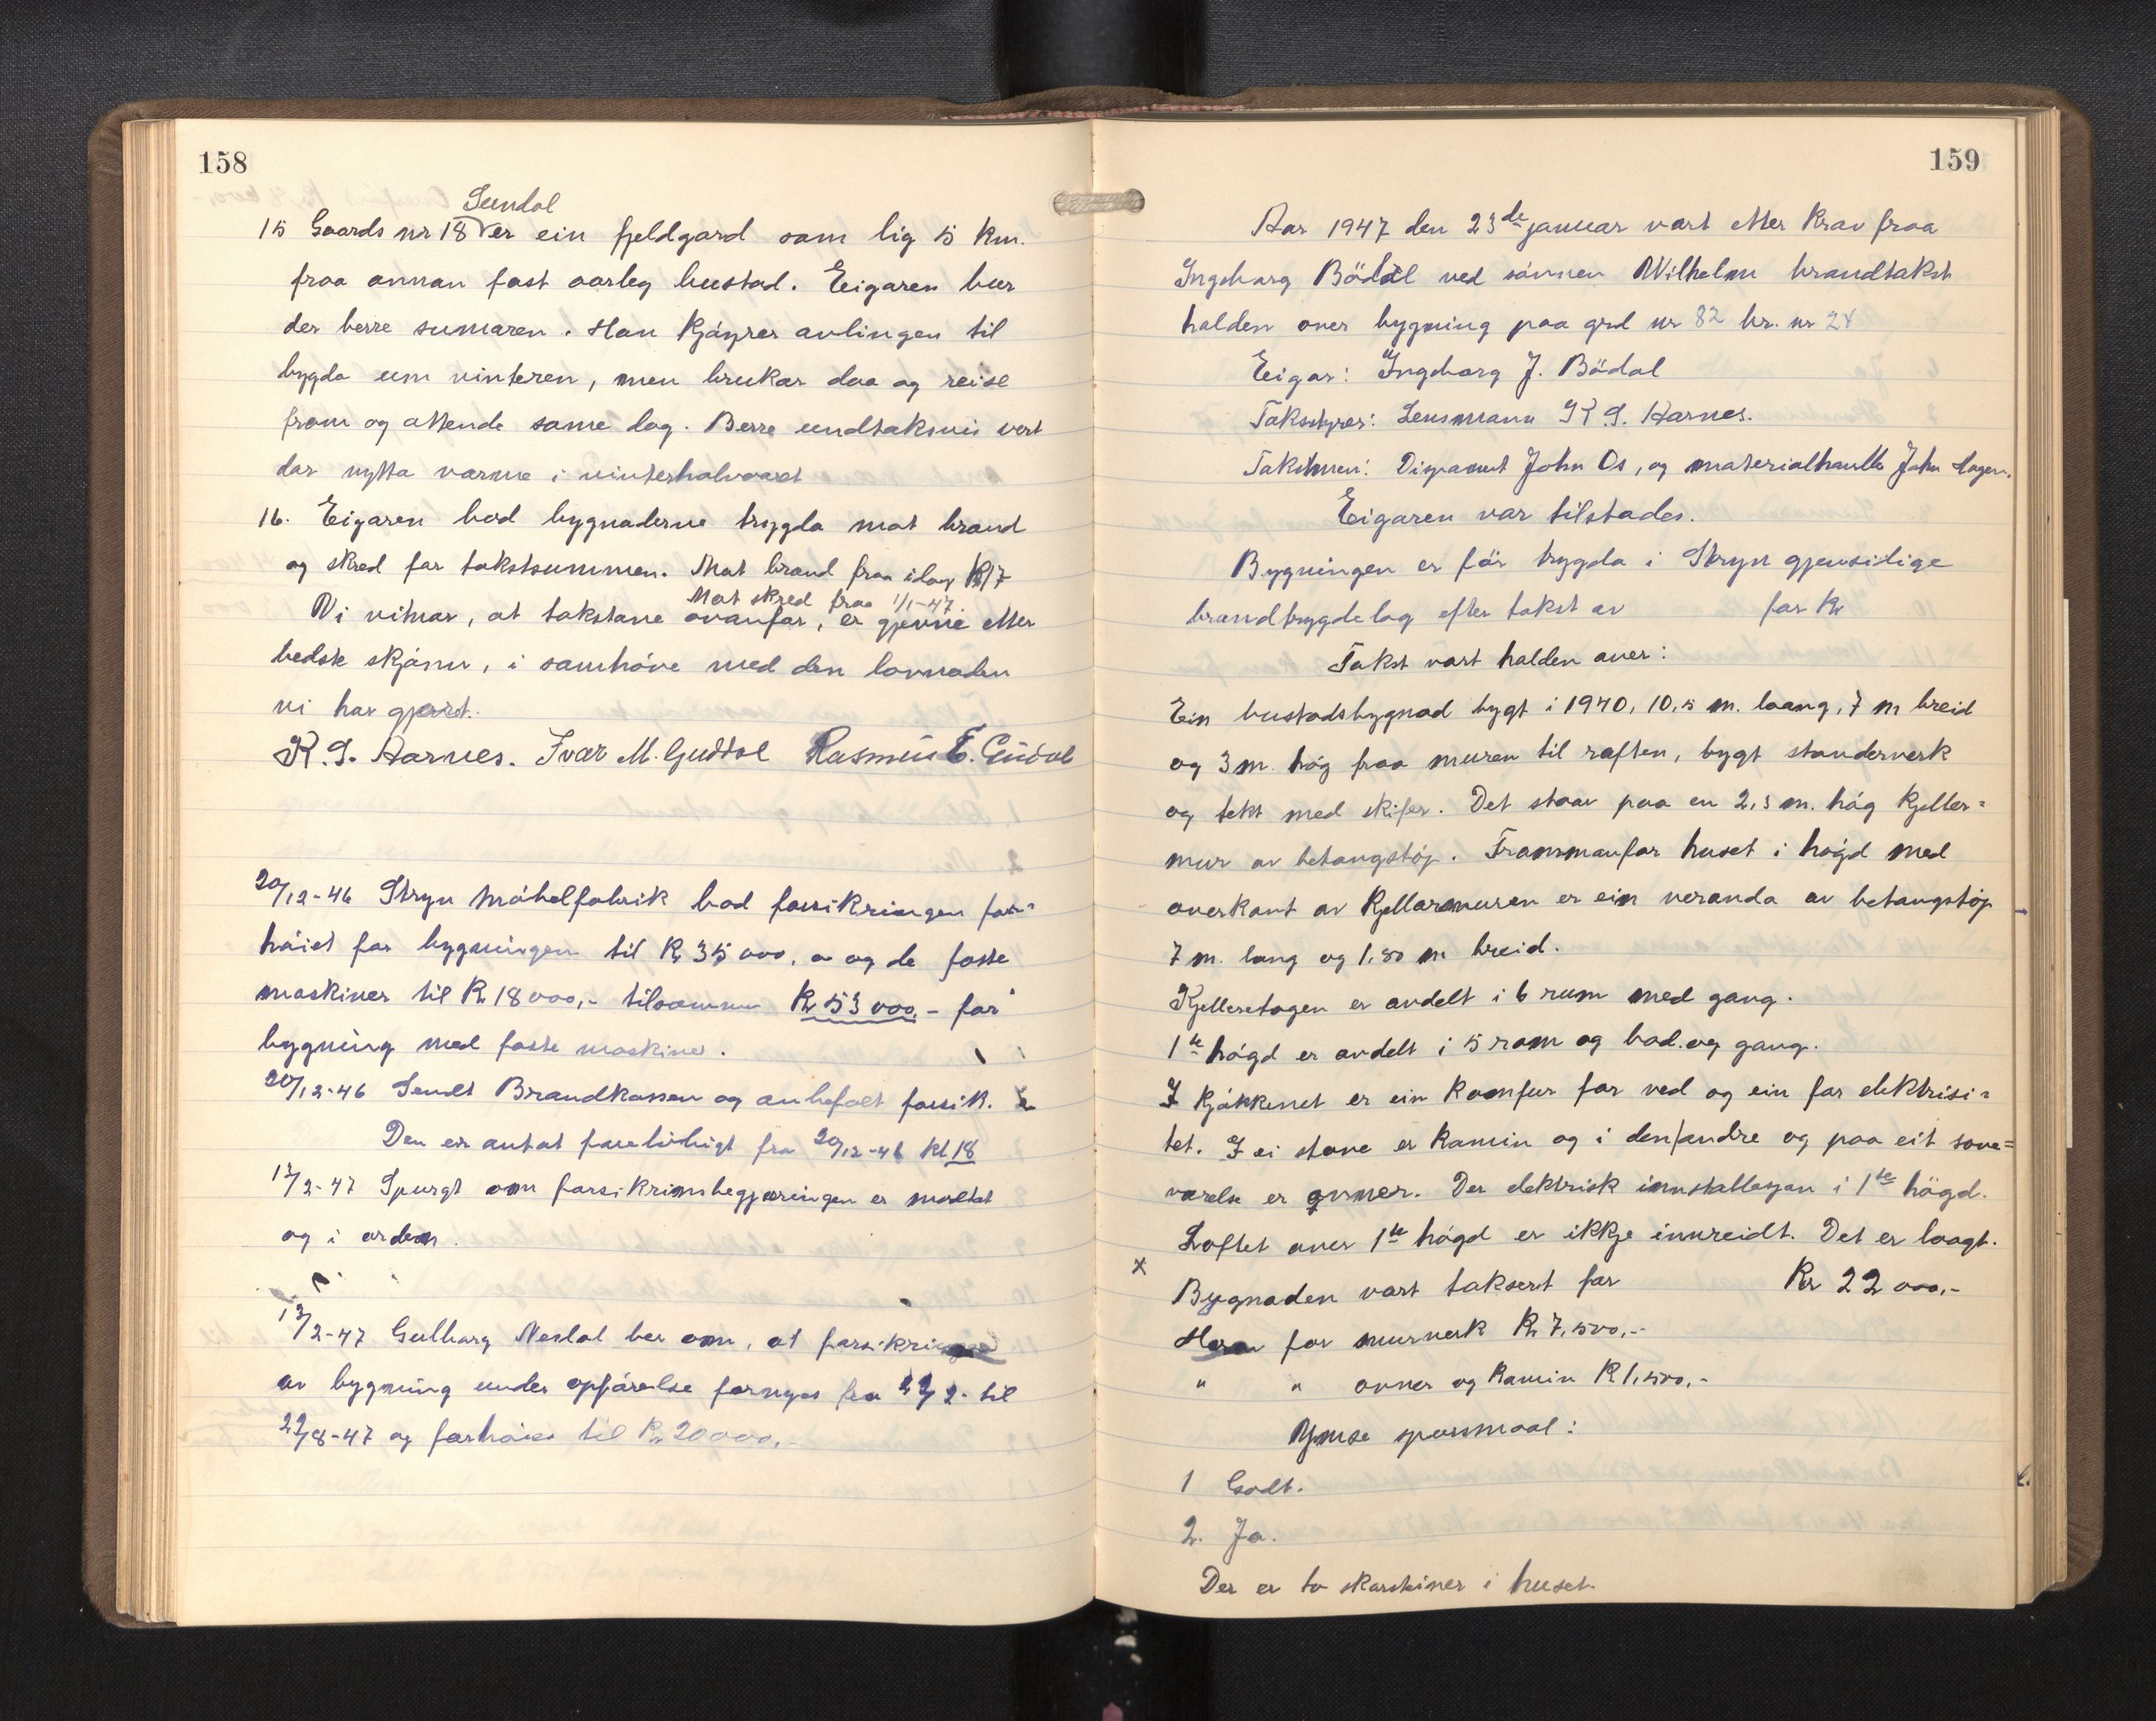 158
Sundal
15 Gaards nr 18 er ein fjeldgard som lig 5 km.
fraa annan fast aarleg bustad. Eigaren bur
der berre sumaren. Han kjøyrer avlingen til
bygda um vinteren, men brukar daa og reise
fram og attende same dag. Berre undtaksvis vert
dar nytta varme i vinterhalvaaret
16. Eigaren bad bygnaderne trygda mot brand
og skred for takstsummen. Mot brand fraa idag Kl 17
Mot skred fraa 1/1-47.
Vi vitnar, at takstane ovanfor, er gjevne etter
bedste skjønn, i samhøve med den lovnaden
vi har gjevet.
K. S. Aarnes. Ivar M. Guddal Rasmus E. Guddal
20/12-46 Stryn Møbelfabrik bad forsikringen for=
høiet for bygningen til Kr 35 000, og de faste
maskiner til Kr 18 000,- tilsammen Kr 53 000,- for
bygning med faste maskiner.
20/12-46 Sendt Brandkassen og anbefalt forsik.
Den er antat foreløbigt fra 20/12-46 kl 18
17/2-47 Spurgt om forsikrinsbegjæringen er mottat
og i orden.
17/2-47 Gulborg Nesdal ber om, at forsikringen
av bygning under opførelse fornyes fra 22/2- til
22/8-47 og forhøies til Kr 20 000,-
159
Aar 1947 den 23de januar vart etter krav fraa
Ingeborg Bödal ved sønnen Wilhelm brandtakst
halden over bygning paa grd nr 82 br. nr 24
Eigar: Ingeborg J. Bödal
Takstyrer: Lensmann K. S. Aarnes.
Takstmen: Disponent John Os, og materialhandler John Hagen.
Eigaren var tilstades.
Bygningen er før trygda i Stryn gjensidige
brandtrygdelag efter takst av for Kr
Takst vart halden over:
Ein bustadsbygnad bygt i 1940, 10,5 m. laang, 7 m breid
og 3 m. høg fraa muren til raften, bygt standerverk
og tekt med skifer. Det staar paa en 2,3 m. høg kjeller=
mur av betongstøp. Frammanfor huset i høgd med
overkant av kjellarmuren er ein veranda av betongstøp
7 m. lang og 1,80 m breid.
Kjelleretagen er avdelt i 6 rum med gang.
1te høgd er avdelt i 5 rom og bad og gang.
I kjøkkenet er ein komfur for ved og ein for elektrisi=
tet. I ei stove er kamin og i den andre og paa eit sove=
værelse er ovner. Der elektrisk innstallasjon i 1te høgd.
Loftet over 1te høgd er ikkje innreidt. Det er laagt.
x Bygnaden vart taksert for Kr 22 000,-
Herav for murverk Kr 7,500,-
" " ovner og kamin Kr 1,500,-
Ymse spørsmaal:
1 Godt.
2. Ja.
Der er to skorsteiner i huset.